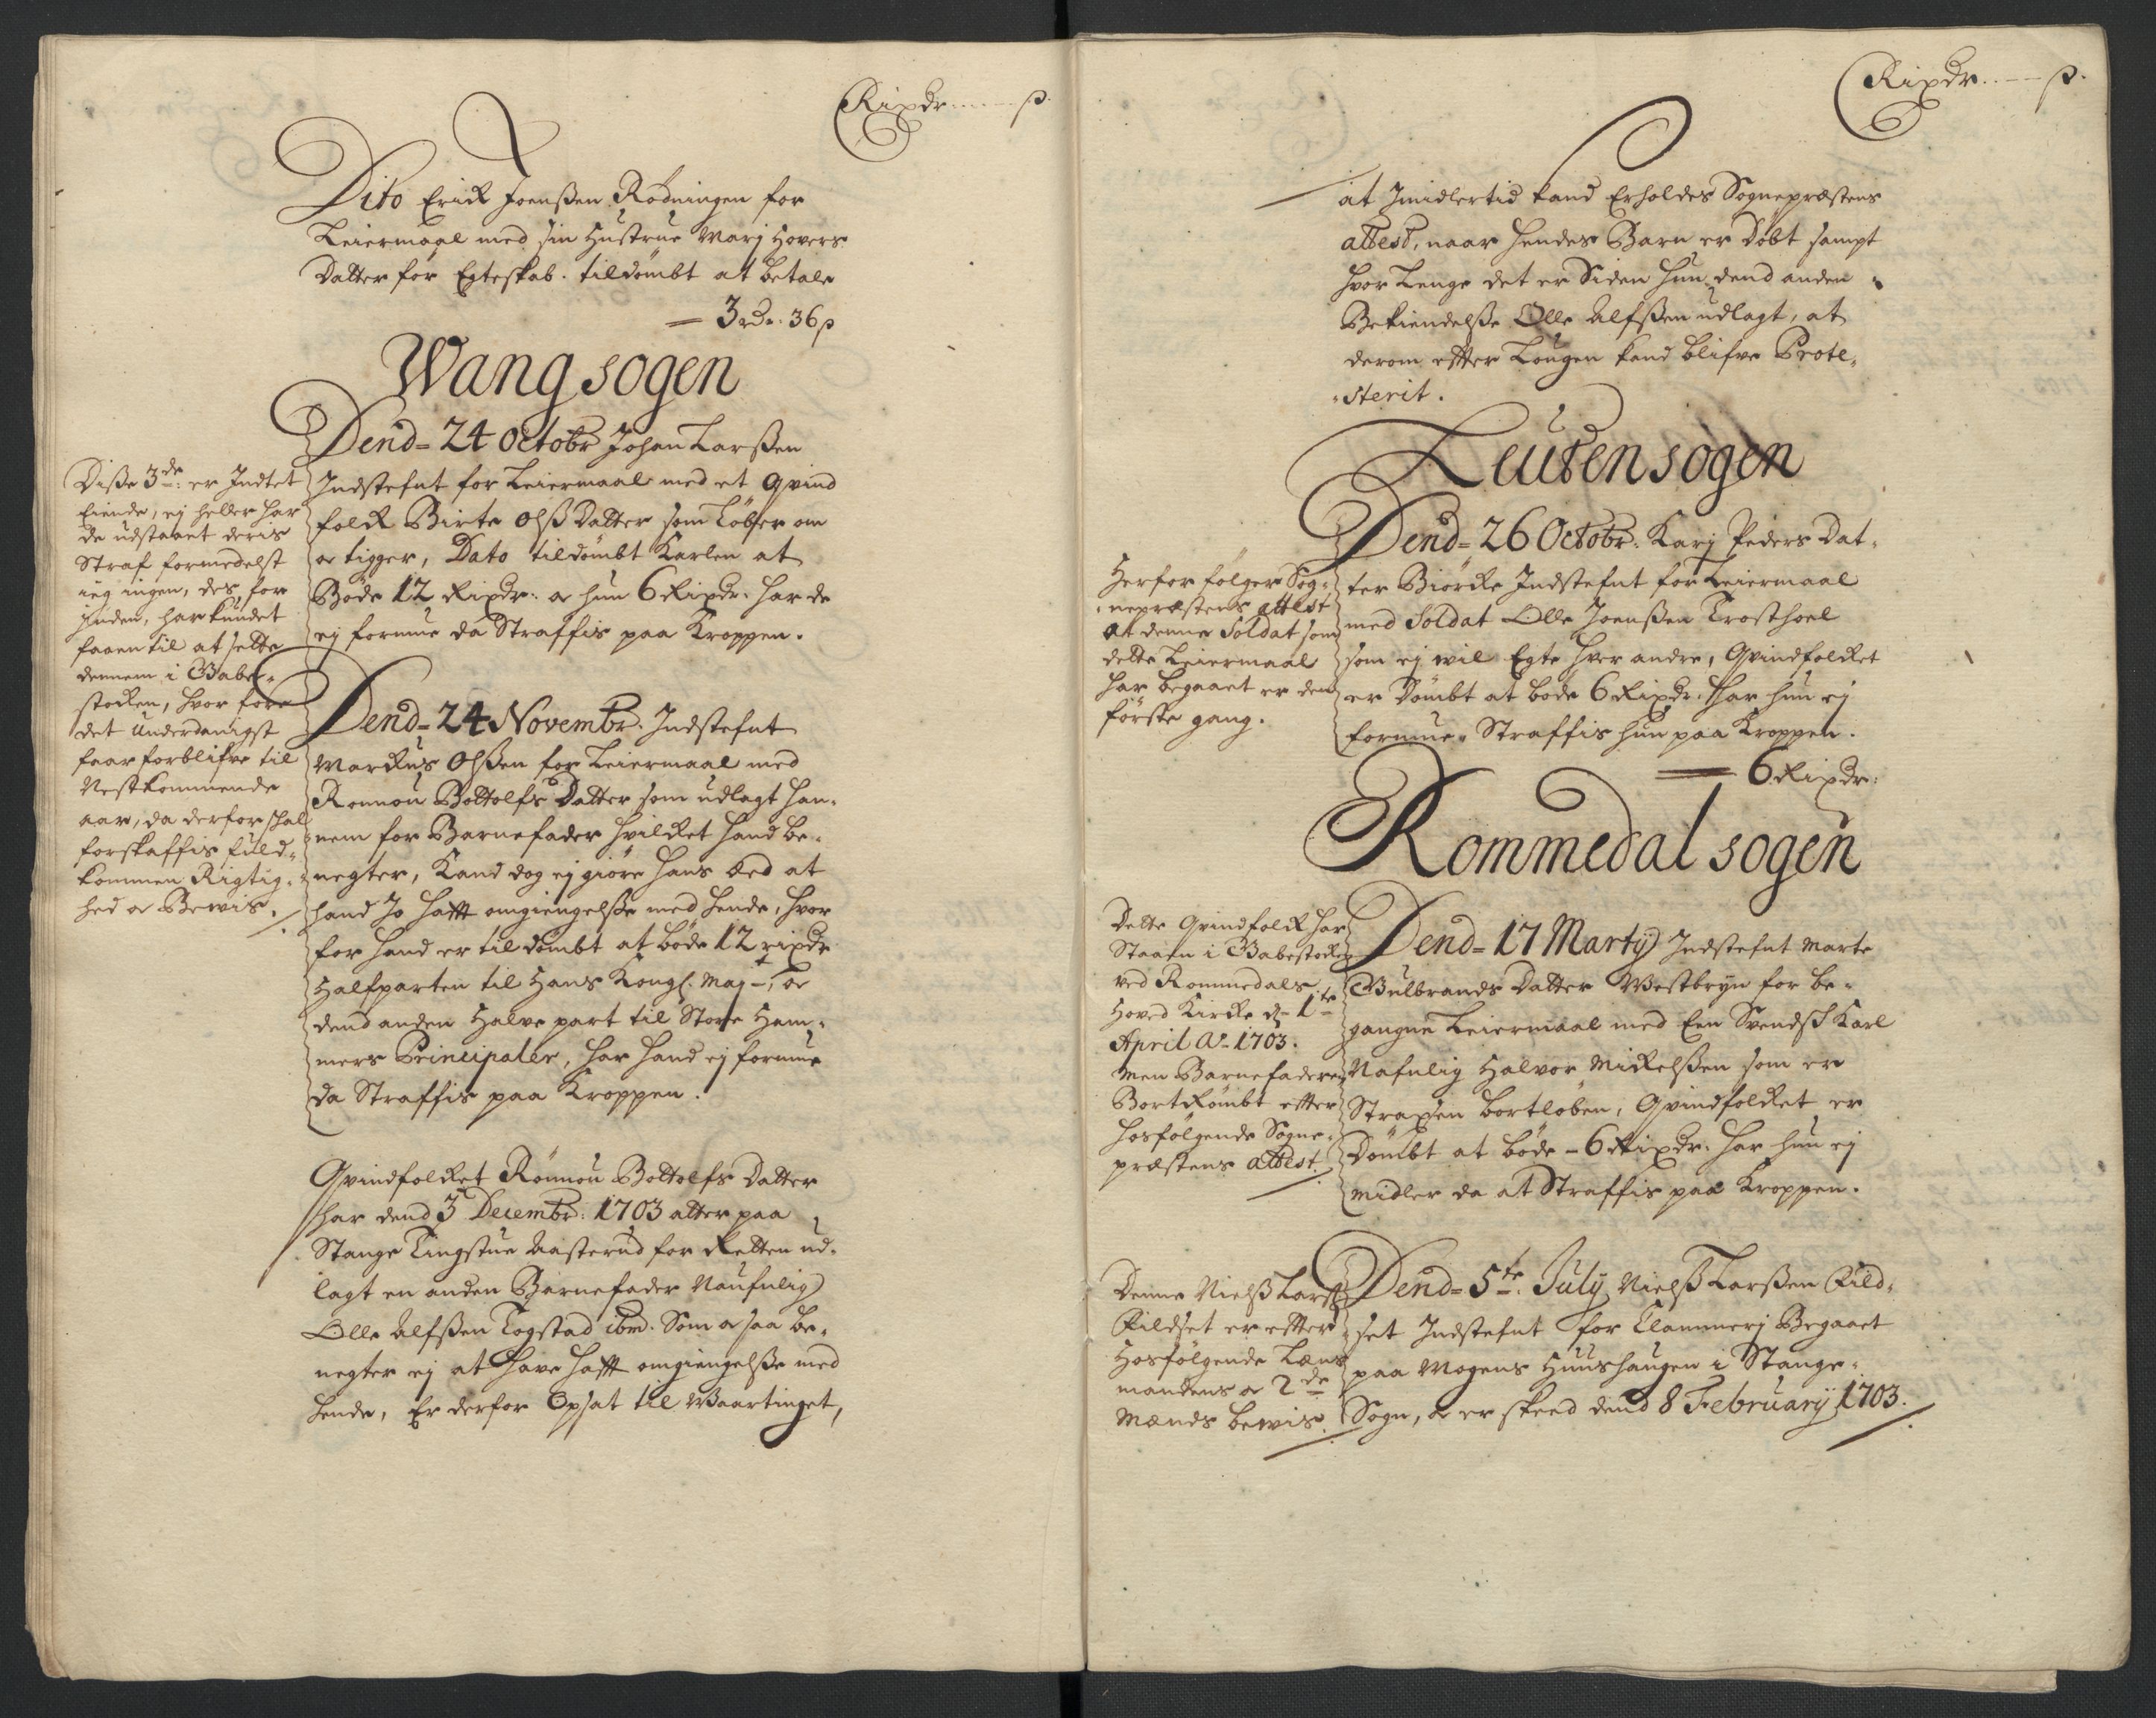 Rixdr ..... ß.
Dito Erick Joenßen Rödningen for
Leiermaal med sin Hustrue Marj Hovers
Datter før Egteskab. tildömbt at betale
— 3 rdr. 36 ß
Wang sogen
Dend = 24 Octobr Johan Larßen
Indstefnt for Leiermaal med et Qvind
folck Birte Olß Datter som Löber om
oc tigger, Dato tildömbt Karlen at
Bøde 12 Rixdr: oc hun 6 Rixdr. har de
ej formue da Straffis paa Kroppen.
Diße 3de: er Indtet
Eiende, ej heller har
de udstaaet deris
Straf formedelst
ieg ingen, des for
inden, har kundet
faaen til at sette
dennem i Gabe-
stocken, hvor fore
det Underdanigst
faar forblifve til
Nestkommende
aar, da derfor skal
forskaffis fuld-
kommen Rigtig-
hed oc Bewis.
Dend = 24 Novembr. Indstefnt
Marckus Olßen for Leiermaal med
Ronnou Bottolfs Datter som udlagt han-
nem for Barnefader hvilcket hand be-
negter, Kand dog ej giöre hans Eed at
hand Jo hafft omgiengelße med hende, hvor
for hand er tildömbt at böde 12 rixdr
Halfparten til Hans Kongl. Mayt, oc
dend anden Halve part til Store Ham-
mers Principaler, har hand ej formue
da Straffis paa Kroppen.
Qvindfolcket Rönnou Bottolfs Datter
har dend 3 Decembr: 1703 atter paa
Stange Tingstue Aasterud for Retten ud-
lagt en anden Barnefader Naufnlig
Olle Alfßen Togstad ibm. Som oc saa be-
negter ej at have hafft omgiengelße med
hende, Er derfor Opsat til Waartinget,
Rixdr ..... ß.
at Imidlertid kand Erholdes Sognepræstens
attest, naar hendes Barn er Döbt sampt
hvor Lenge det er Siden hun dend anden
Bekiendelße Olle Alfßen udlagt, at
derom efter Lougen kand blifve Prote-
sterit.
Leuten sogen
Dend = 26 Octobr. Karj Peders Dat-
ter Biörcke Indstefnt for Leiermaal
med Soldat Olle Joenßen Trosthoel
som ej wil Egte hver andre, Qvindfolcket
er Dömbt at bøde 6 Rixdr. Har hun ej
formue, Straffis hun paa Kroppen.
— 6 Rixdr:
Herfor fölger Sog-
nepræstens attest
At denne Soldat som
dette Leiermaal
har begaaet er den
förste gang.
Rommedal sogen
Dend = 17 Martij Indstefnt Marte
Gulbrands Datter Westbryn for be-
gangne Leiermaal med Een Svendsk Karl
Nafnlig Halvor Mickelßen som er
Straxen bortløben, Qvindfolcket er
Dömbt at bøde – 6 Rixdr. har hun ej
midler da at Straffis paa Kroppen.
Dette Qvindfolck har
Staaen i Gabestocken
ved Rommedals
Hoved Kircke d 1te
April Ao 1703.
Men Barnefaderen
Bortrömbt efter
hosfölgende Sogne-
præstens attest.
Dend = 5te. July Nielß Larßen Kild-
set Indstefnt for Klammerj Begaaet
paa Mogens Huushaugen i Stange-
Sogn, oc er skeed dend 8 February 1703.
Denne Nielß Larß
Kildset er efter
Hosfölgende Lens
mandens oc 2de
Mænds bewis.